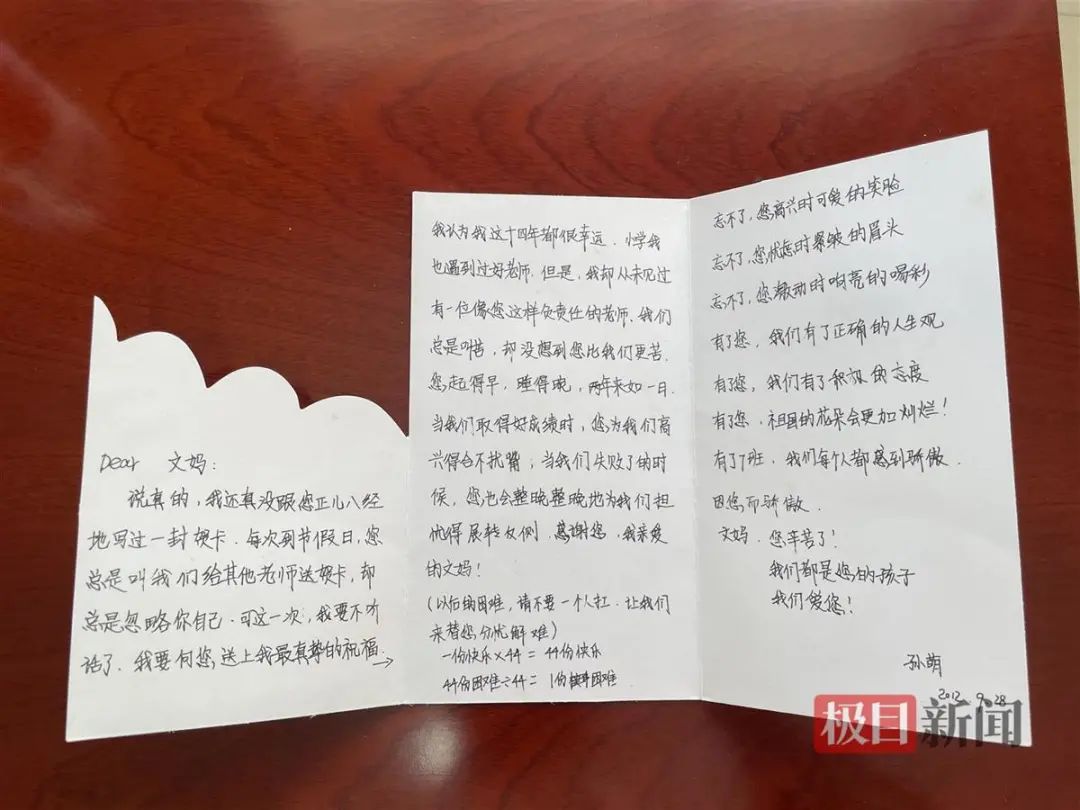 Dear 文妈：
说真的，我还真没跟您正儿八经
地写过一封贺卡．每次到节假日，您
总是叫我们给其他老师送贺卡，却
总是忽略你自己．可这一次，我要不听
话了．我要向您，送上我最真挚的祝福．
→
我认为我这十四年都很幸运．小学我
也遇到过好老师．但是，我却从未见过
有一位像您这样负责任的老师．我们
总是叫苦，却没想到您比我们更苦．
您起得早，睡得晚，两年来如一日．
当我们取得好成绩时，您为我们高
兴得合不拢嘴；当我们失败了的时
候，您也会整晚整晚地为我们担
忧得展转反侧．感谢您，我亲爱
的文妈！
(以后的困难，请不要一个人扛．让我们
来替您分忧解难)
一份快乐×44＝44份快乐
44份困难÷44＝1份困难
忘不了，您高兴时可爱的笑脸
忘不了，您忧虑时紧皱的眉头
忘不了，您激动时响亮的喝彩
有了您，我们有了正确的人生观
有了您，我们有了积极的态度
有了您，祖国的花朵会更加灿烂！
有了7班，我们每个人都感到骄傲．
因您而骄傲．
文妈．您辛苦了！
我们都是您的孩子
我们爱您！
孙萌
2012.9.28
极目新闻